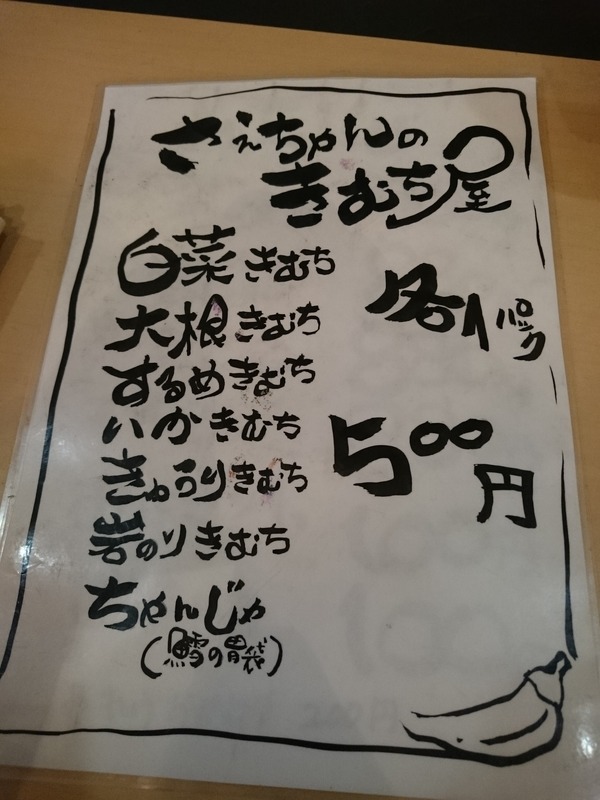 さぇちゃんの
きむち屋
白菜きむち
大根きむち
するめきむち
いかきむち
きゅうりきむち
岩のりきむち
ちゃんじゃ
(鱈の胃袋)
各1パック
500円